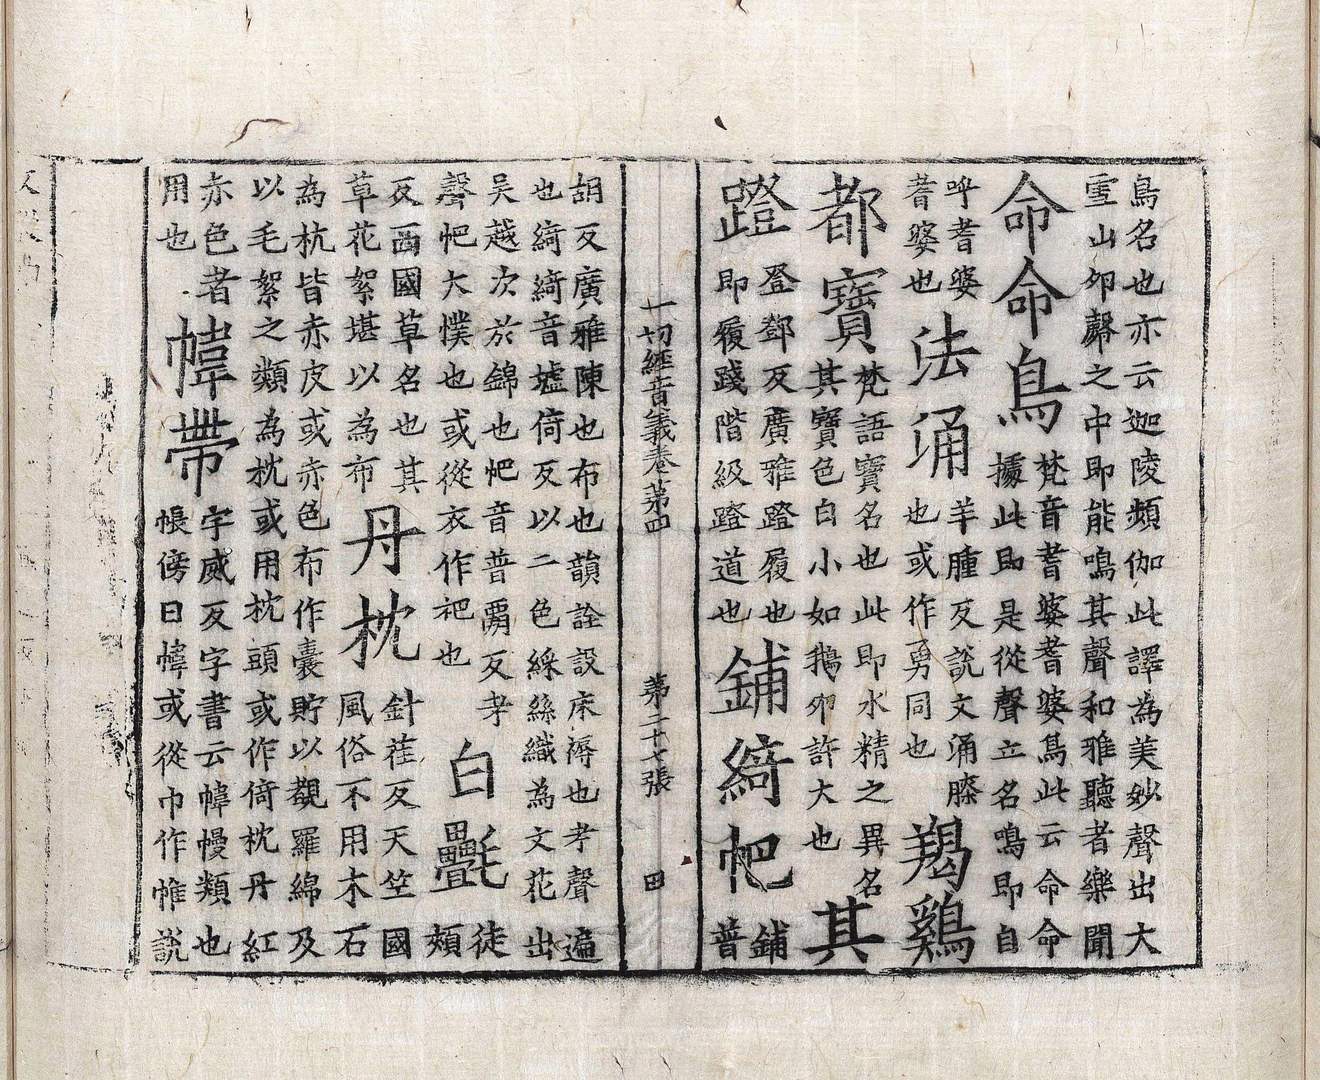 鳥名也亦云迦陵頻伽此譯為美妙聲出大
雪山卵㲉之中即能鳴其聲和雅聽者樂聞
命命鳥
梵音耆婆耆婆鳥此云命命
據此即是從聲立名鳴即自
呼耆婆
耆婆也
法涌
羊腫反說文涌滕
也或作勇同也
羯鷄
都寶
梵語寶名也此即水精之異名
其寶色白小如鵝卵許大也
其
蹬
登鄧反廣雅蹬履也
即履踐階級蹬道也
鋪綺帊
鋪
普
胡反廣雅陳也布也韻詮設床溽也考聲遍
也綺綺音墟倚反以二色綵絲織為文花出
吳越次於錦也帊音普罵反考
聲帊大幞也或從衣作祀也
白㲲
徒
頰
反西國草名也其
草花絮堪以為布
丹枕
針荏反天竺國
風俗不用木石
為枕皆赤皮或赤色布作囊貯以覩羅綿及
以毛絮之類為枕或用枕頭或作倚枕丹紅
赤色者
幃帶
字威反字書云幃幔類也
帳傍曰幃或從巾作帷說
用也
一切經音義卷第四 第二十七張 田